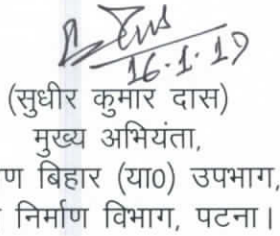 16.1.19
(सुधीर कुमार दास)
मुख्य अभियंता,
ण बिहार (या0) उपभाग,
निर्माण विभाग, पटना।